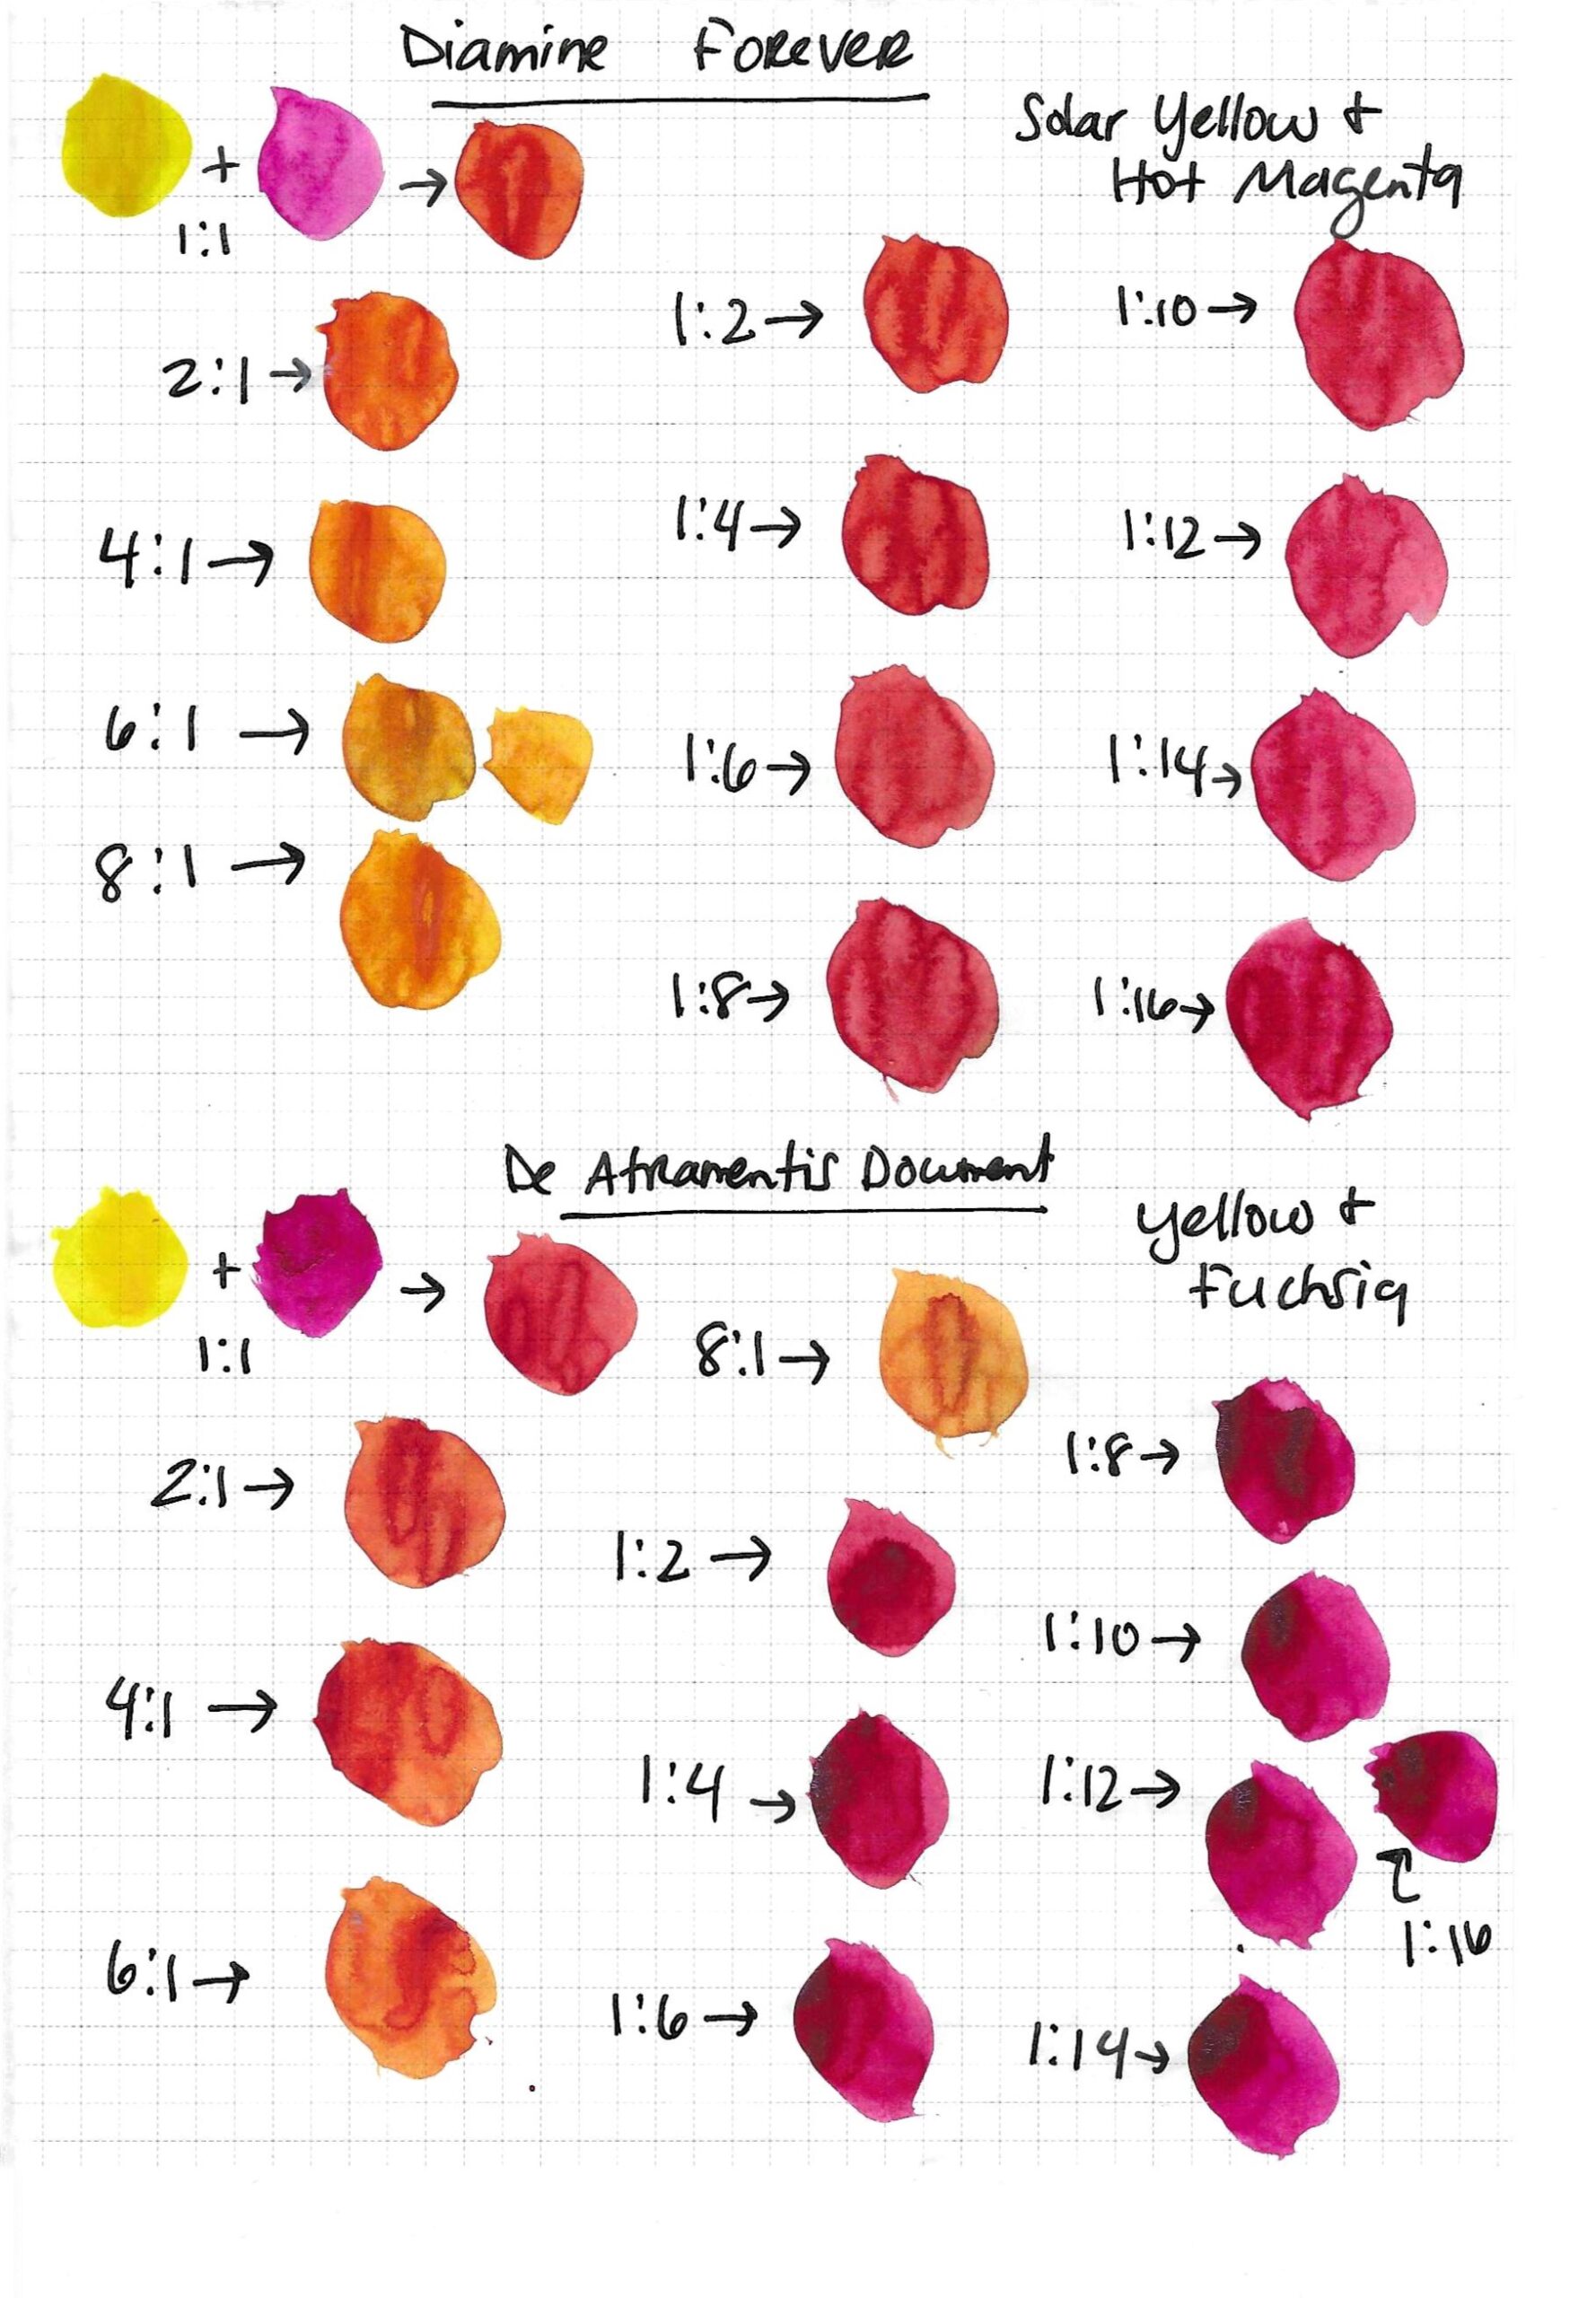 Diamine Forever
Solar Yellow +
Hot Magenta
+
1:1
→
2:1→
4:1→
6:1→
8:1→
1:2→
1:4→
1:6→
1:8→
1:10→
1:12→
1:14→
1:16→
De Atramentis Document
Yellow +
Fuchsia
+
1:1
→
2:1→
4:1→
6:1→
8:1→
1:2→
1:4→
1:6→
1:8→
1:10→
1:12→
1:16
1:14→